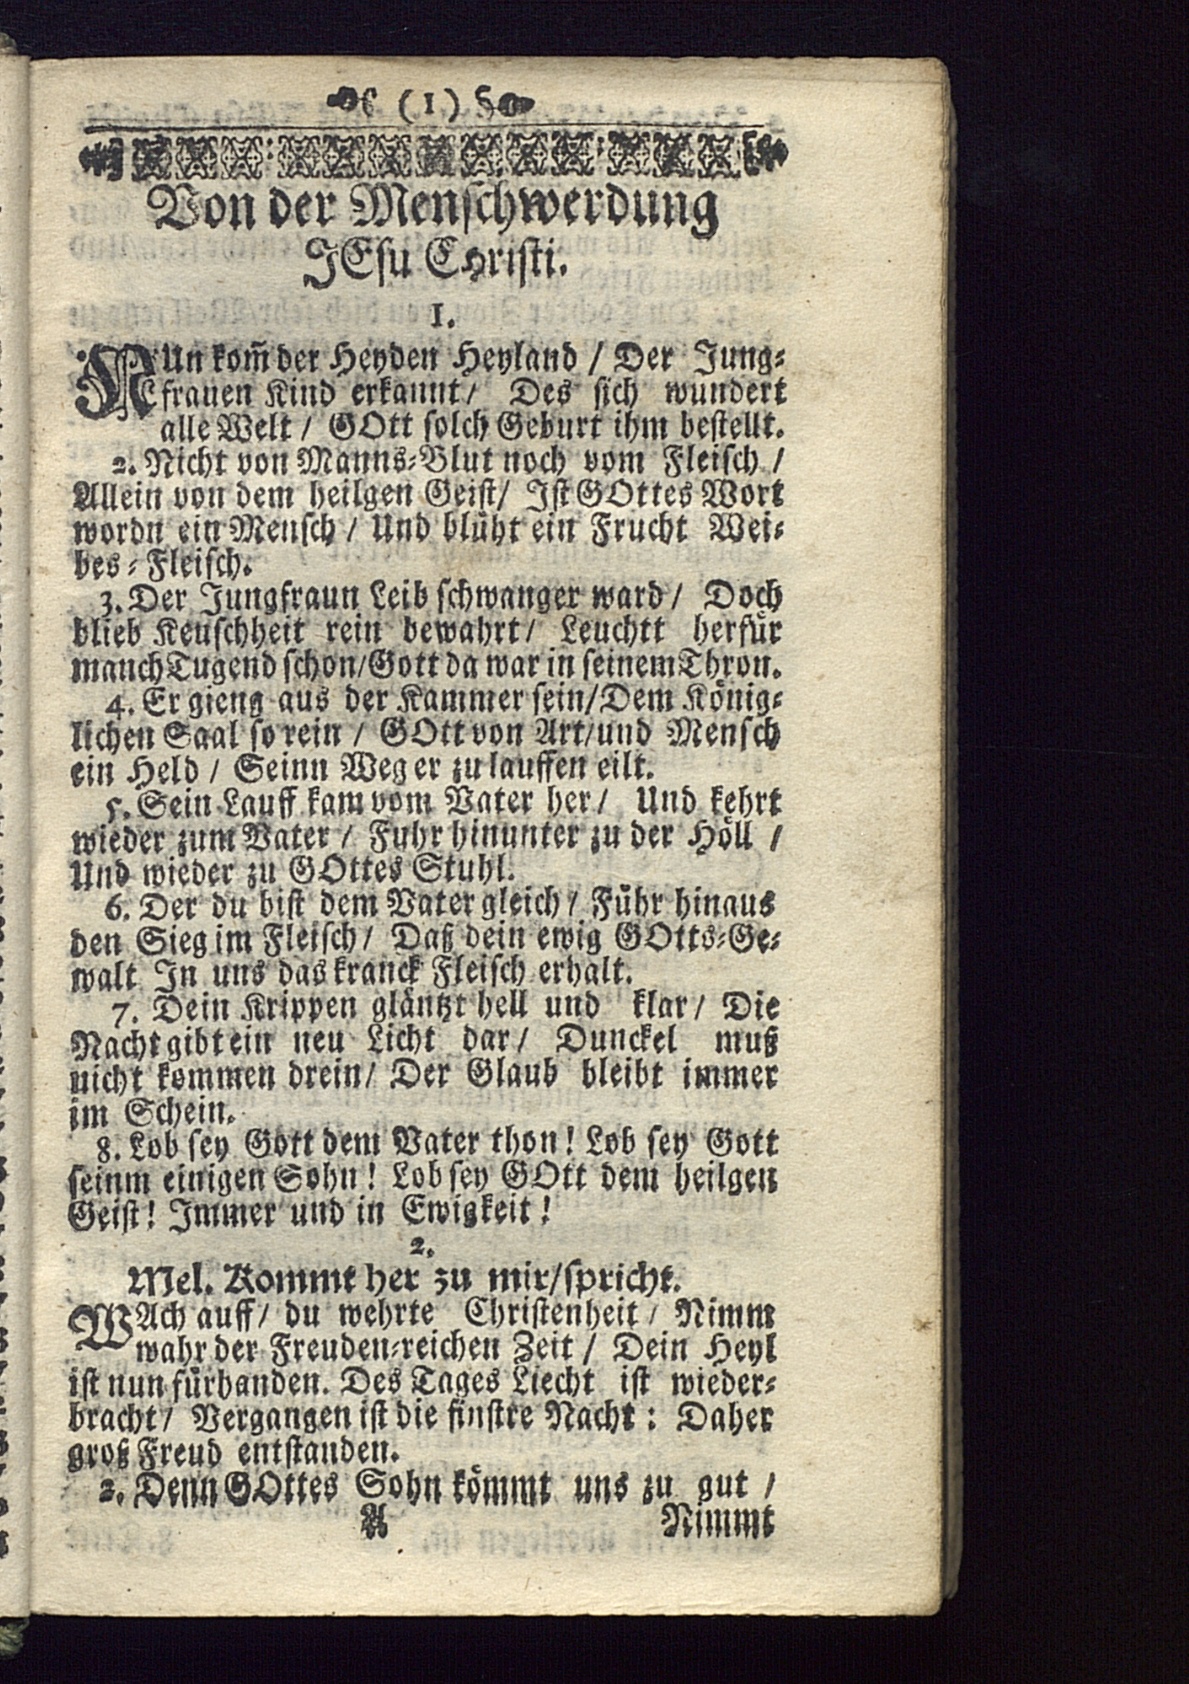 (1)
Von der Menschwerdung
JEsu CHristi.
1.
NUn kom̃ der Heyden Heyland / Der Jung-
frauen Kind erkannt / Des sich wundert
alle Welt / GOtt solch Geburt ihm bestellt.
2. Nicht von Manns-Blut noch vom Fleisch /
Allein von dem heilgen Geist / Ist GOttes Wort
wordn ein Mensch / Und blüht ein Frucht Wei-
bes-Fleisch.
3. Der Jungfraun Leib schwanger ward / Doch
blieb Keuschheit rein bewahrt / Leuchtt herfür
manch Tugend schon / Gott da war in seinem Thron.
4. Er gieng aus der Kammer sein / Dem König-
lichen Saal so rein / GOtt von Art / und Mensch
ein Held / Seinn Weg er zu lauffen eilt.
5. Sein Lauff kam vom Vater her / Und kehrt
wieder zum Vater / Fuhr hinunter zu der Höll /
Und wieder zu GOttes Stuhl.
6. Der du bist dem Vater gleich / Führ hinaus
den Sieg im Fleisch / Daß dein ewig GOtts-Ge-
walt In uns das kranck Fleisch erhalt.
7. Dein Krippen gläntzt hell und klar / Die
Nacht gibt ein neu Licht dar / Dunckel muß
nicht kommen drein / Der Glaub bleibt immer
im Schein.
8. Lob sey Gott dem Vater thon! Lob sey Gott
seinm einigen Sohn! Lob sey GOtt dem heilgen
Geist! Immer und in Ewigkeit!
2.
Mel. Kommt her zu mir / spricht.
WAch auff / du wehrte Christenheit / Nimm
wahr der Freuden-reichen Zeit / Dein Heyl
ist nun fürhanden. Des Tages Liecht ist wieder-
bracht / Vergangen ist die finstre Nacht: Daher
groß Freud entstanden.
2. Denn GOttes Sohn kömmt uns zu gut /
A Nimmt